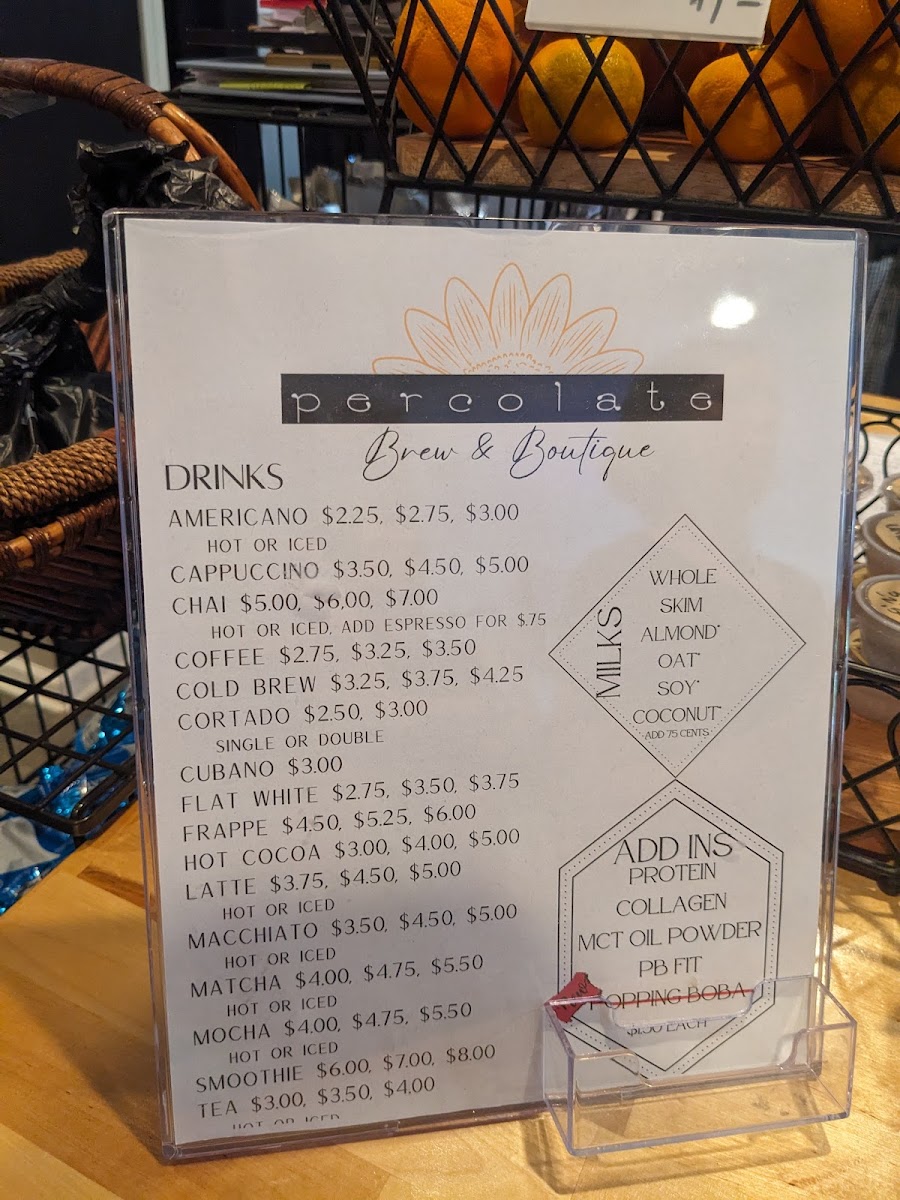 percolate
Brew & Boutique
DRINKS
AMERICANO $2.25, $2.75, $3.00
HOT OR ICED
CAPPUCCINO $3.50, $4.50, $5.00
CHAI $5.00, $6.00, $7.00
HOT OR ICED, ADD ESPRESSO FOR $.75
COFFEE $2.75, $3.25, $3.50
COLD BREW $3.25, $3.75, $4.25
CORTADO $2.50, $3.00
SINGLE OR DOUBLE
CUBANO $3.00
FLAT WHITE $2.75, $3.50, $3.75
FRAPPE $4.50, $5.25, $6.00
HOT COCOA $3.00, $4.00, $5.00
LATTE $3.75, $4.50, $5.00
HOT OR ICED
MACCHIATO $3.50, $4.50, $5.00
HOT OR ICED
MATCHA $4.00, $4.75, $5.50
HOT OR ICED
MOCHA $4.00, $4.75, $5.50
HOT OR ICED
SMOOTHIE $6.00, $7.00, $8.00
TEA $3.00, $3.50, $4.00
HOT OR ICED
MILKS
WHOLE
SKIM
ALMOND*
OAT*
SOY*
COCONUT*
ADD 75 CENTS
ADD INS
PROTEIN
COLLAGEN
MCT OIL POWDER
PB FIT
POPPING BOBA
$1.50 EACH